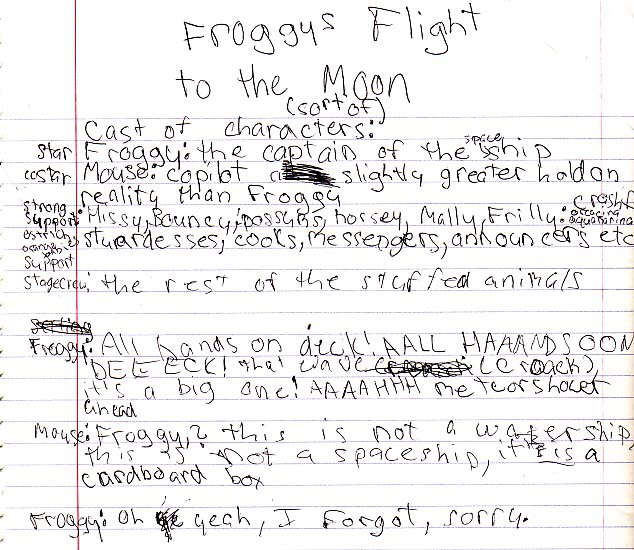 Froggys Flight
to the Moon
(sort of)
Cast of characters:
star Froggy: the captain of the space ship
costar Mouse: copilot a slightly greater hold on
reality than Froggy
strong support: Missy, Bouncy, possums, horsey, Mally, Frilly:
stuardesses, cooks, messengers, announcers etc
support
stagecrew: the rest of the stuffed animals
Froggy: All hands on deck! AALL HAAANDS OON
DEEEECK! that wave (croack),
it's a big one! AAAAHHH meteorshower
ahead
Mouse: Froggy, this is not a watership,
this is not a spaceship, it is a
cardboard box
Froggy: Oh yeah, I forgot, sorry.